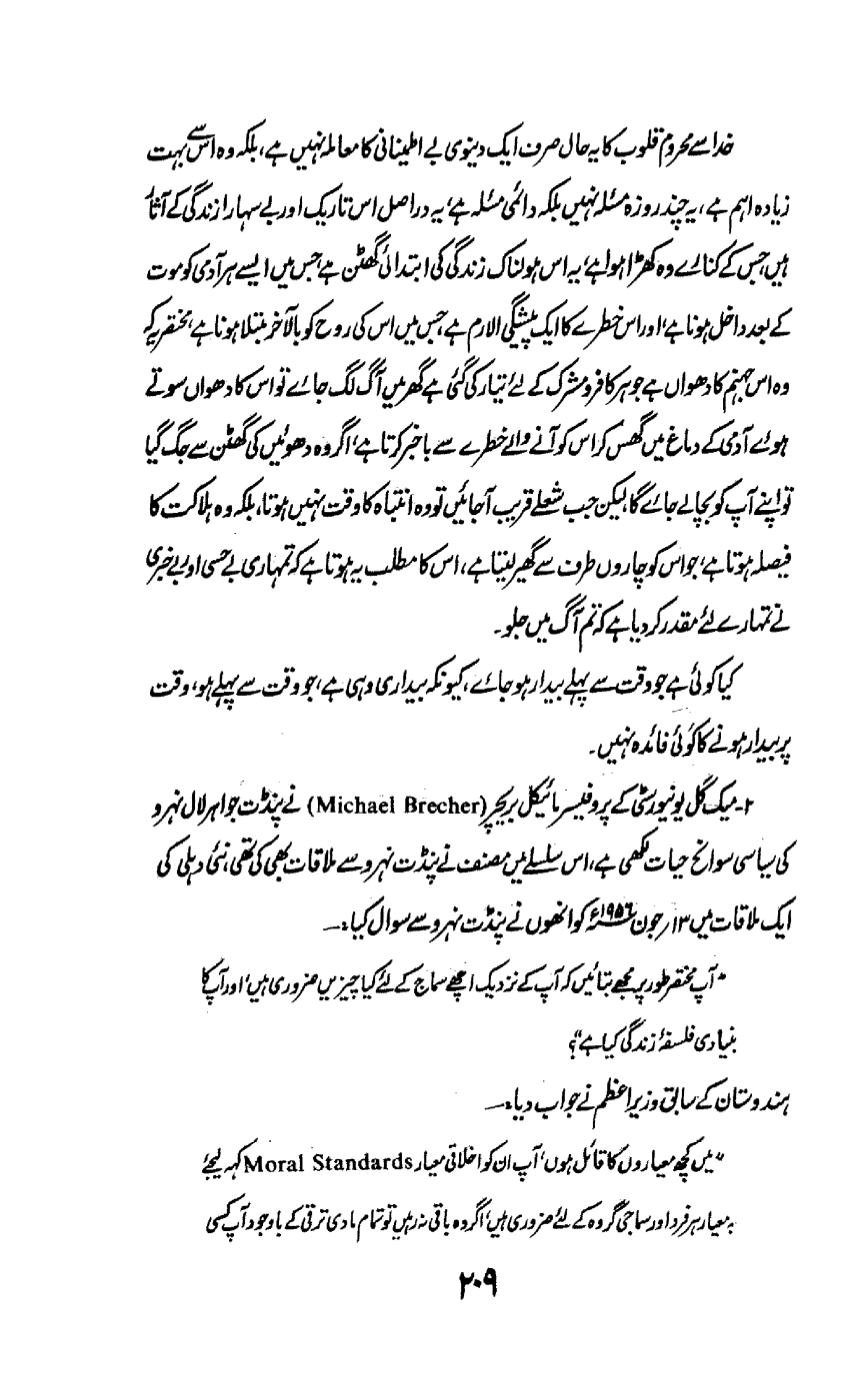 خدا سے محروم قلوب کا یہ حال صرف ایک دینوی بے اطمینانی کا معاملہ نہیں ہے، بلکہ وہ اس سے بہت
زیادہ اہم ہے، یہ چند روزہ مسئلہ نہیں بلکہ دائمی مسئلہ ہے، یہ دراصل اس تاریک اور بے سہارا زندگی کے آثار
ہیں، جس کے کنارے وہ کھڑا ہوا ہے، یہ اس ہولناک زندگی کی ابتدائی گھٹن ہے، جس میں ایسے ہر آدمی کو موت
کے بعد داخل ہونا ہے، اور اس خطرے کا ایک پیشگی الارم ہے، جس میں اس کی روح کو بالآخر مبتلا ہونا ہے، مختصر یہ کہ
وہ اس جہنم کا دھواں ہے جو ہر کافر و مشرک کے لئے تیار کی گئی ہے گھر میں آگ لگ جائے تو اس کا دھواں سوتے
ہوئے آدمی کے دماغ میں گھس کر اس کو آنے والے خطرے سے باخبر کرتا ہے، اگر وہ دھوئیں کی گھٹن سے جگ گیا
تو اپنے آپ کو بچالے جائے گا، لیکن جب شعلے قریب آجائیں تو وہ انتباہ کا وقت نہیں ہوتا، بلکہ وہ ہلاکت کا
فیصلہ ہوتا ہے، جو اس کو چاروں طرف سے گھیر لیتا ہے، اس کا مطلب یہ ہوتا ہے کہ تمہاری بے حسی اور بے خبری
نے تمہارے لئے مقدر کر دیا ہے کہ تم آگ میں جلو۔
کیا کوئی ہے جو وقت سے پہلے بیدار ہو جائے، کیونکہ بیداری وہی ہے، جو وقت سے پہلے ہو، وقت
پر بیدار ہونے کا کوئی فائدہ نہیں۔
۲۔ میک گل یونیورسٹی کے پروفیسر مائیکل بریچر (Michael Brecher) نے پنڈت جواہر لال نہرو
کی سیاسی سوانح حیات لکھی ہے، اس سلسلے میں مصنف نے پنڈت نہرو سے ملاقات بھی کی تھی، نئی دہلی کی
ایک ملاقات میں ۱۳؍جون ۱۹۵۶ء کو انھوں نے پنڈت نہرو سے سوال کیا:۔
"آپ مختصر طور پر مجھے بتائیں کہ آپ کے نزدیک اچھے سماج کے لئے کیا چیزیں ضروری ہیں، اور آپ کا
بنیادی فلسفۂ زندگی کیا ہے"؟
ہندوستان کے سابق وزیر اعظم نے جواب دیا:۔
"میں کچھ معیاروں کا قائل ہوں، آپ ان کو اخلاقی معیار Moral Standards کہہ لیجئے
یہ معیار ہر فرد اور سماجی گروہ کے لئے ضروری ہیں، اگر وہ باقی نہ رہیں تو تمام مادی ترقی کے باوجود آپ کسی
۲۰۹